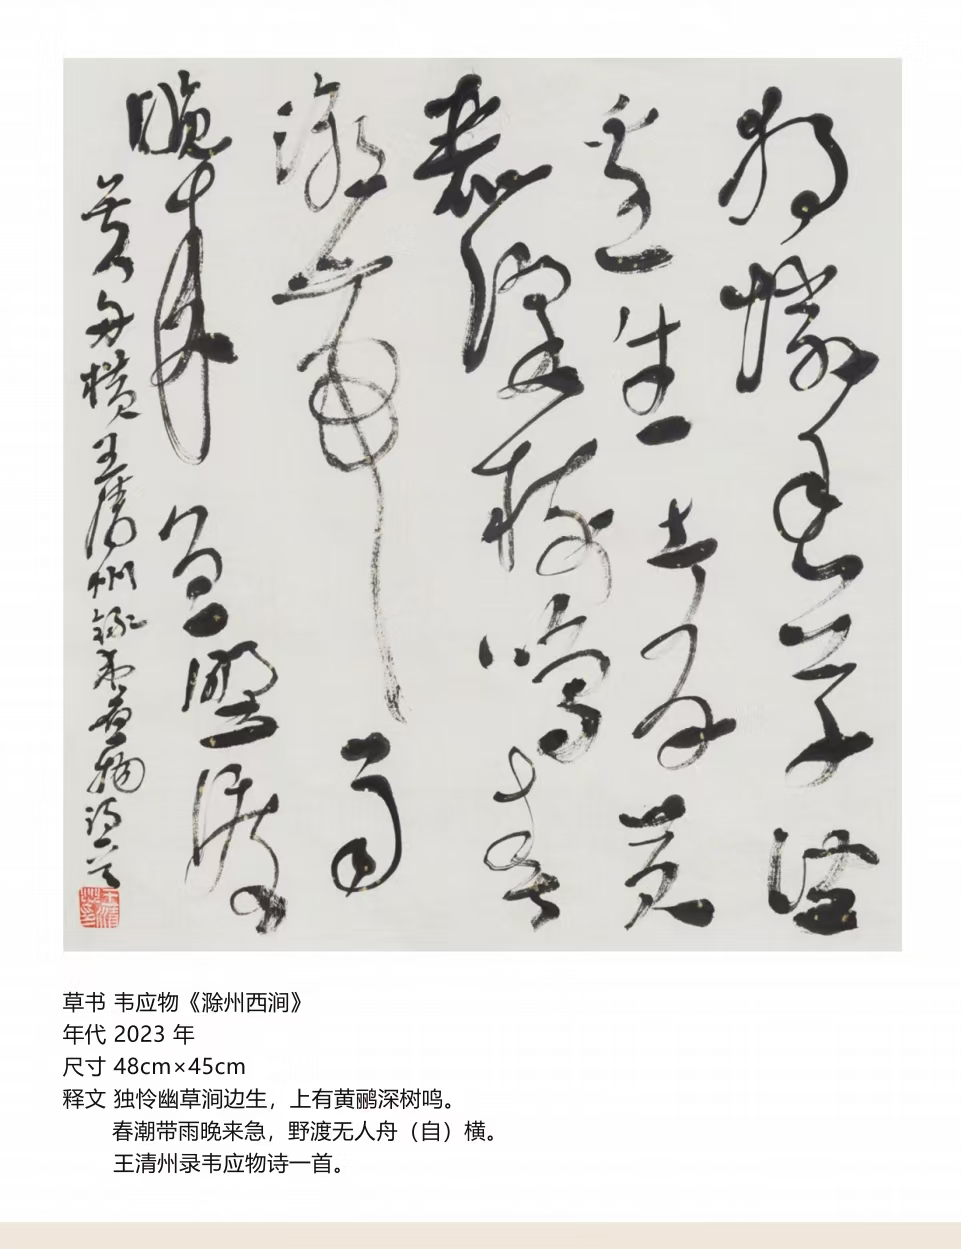 獨憐幽草澗
邊生上有黄
鸝深樹鳴春
潮帶雨
晚来急野渡
无人舟横王清州錄韋應物詩一首
草书 韦应物《滁州西涧》
年代 2023 年
尺寸 48cm×45cm
释文 独怜幽草涧边生，上有黄鹂深树鸣。
春潮带雨晚来急，野渡无人舟（自）横。
王清州录韦应物诗一首。